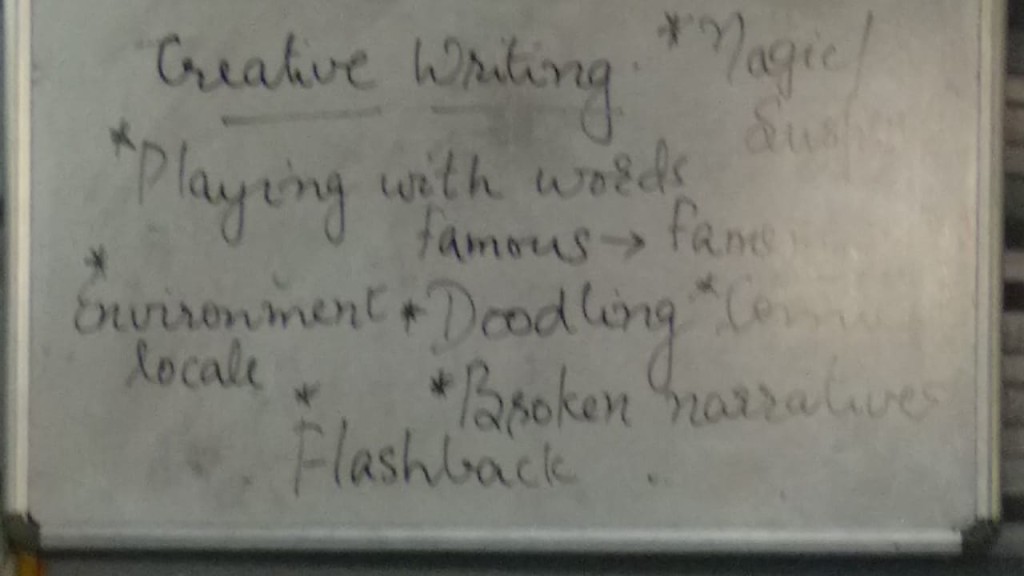 Creative Writing. *Magic/
*Playing with words
famous →
*
Environment *Doodling *
locale
*Broken narratives
*
Flashback